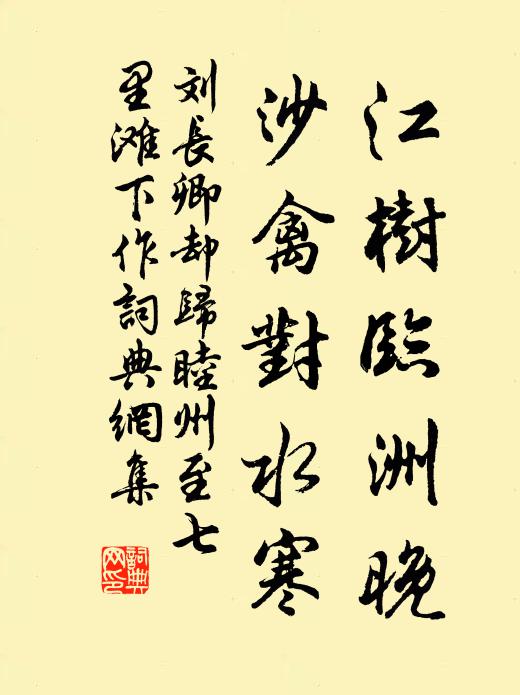 江樹臨洲晚
沙禽對水寒
刘長卿却歸睦州至七
里滩下作詞典網集
詞典
网印